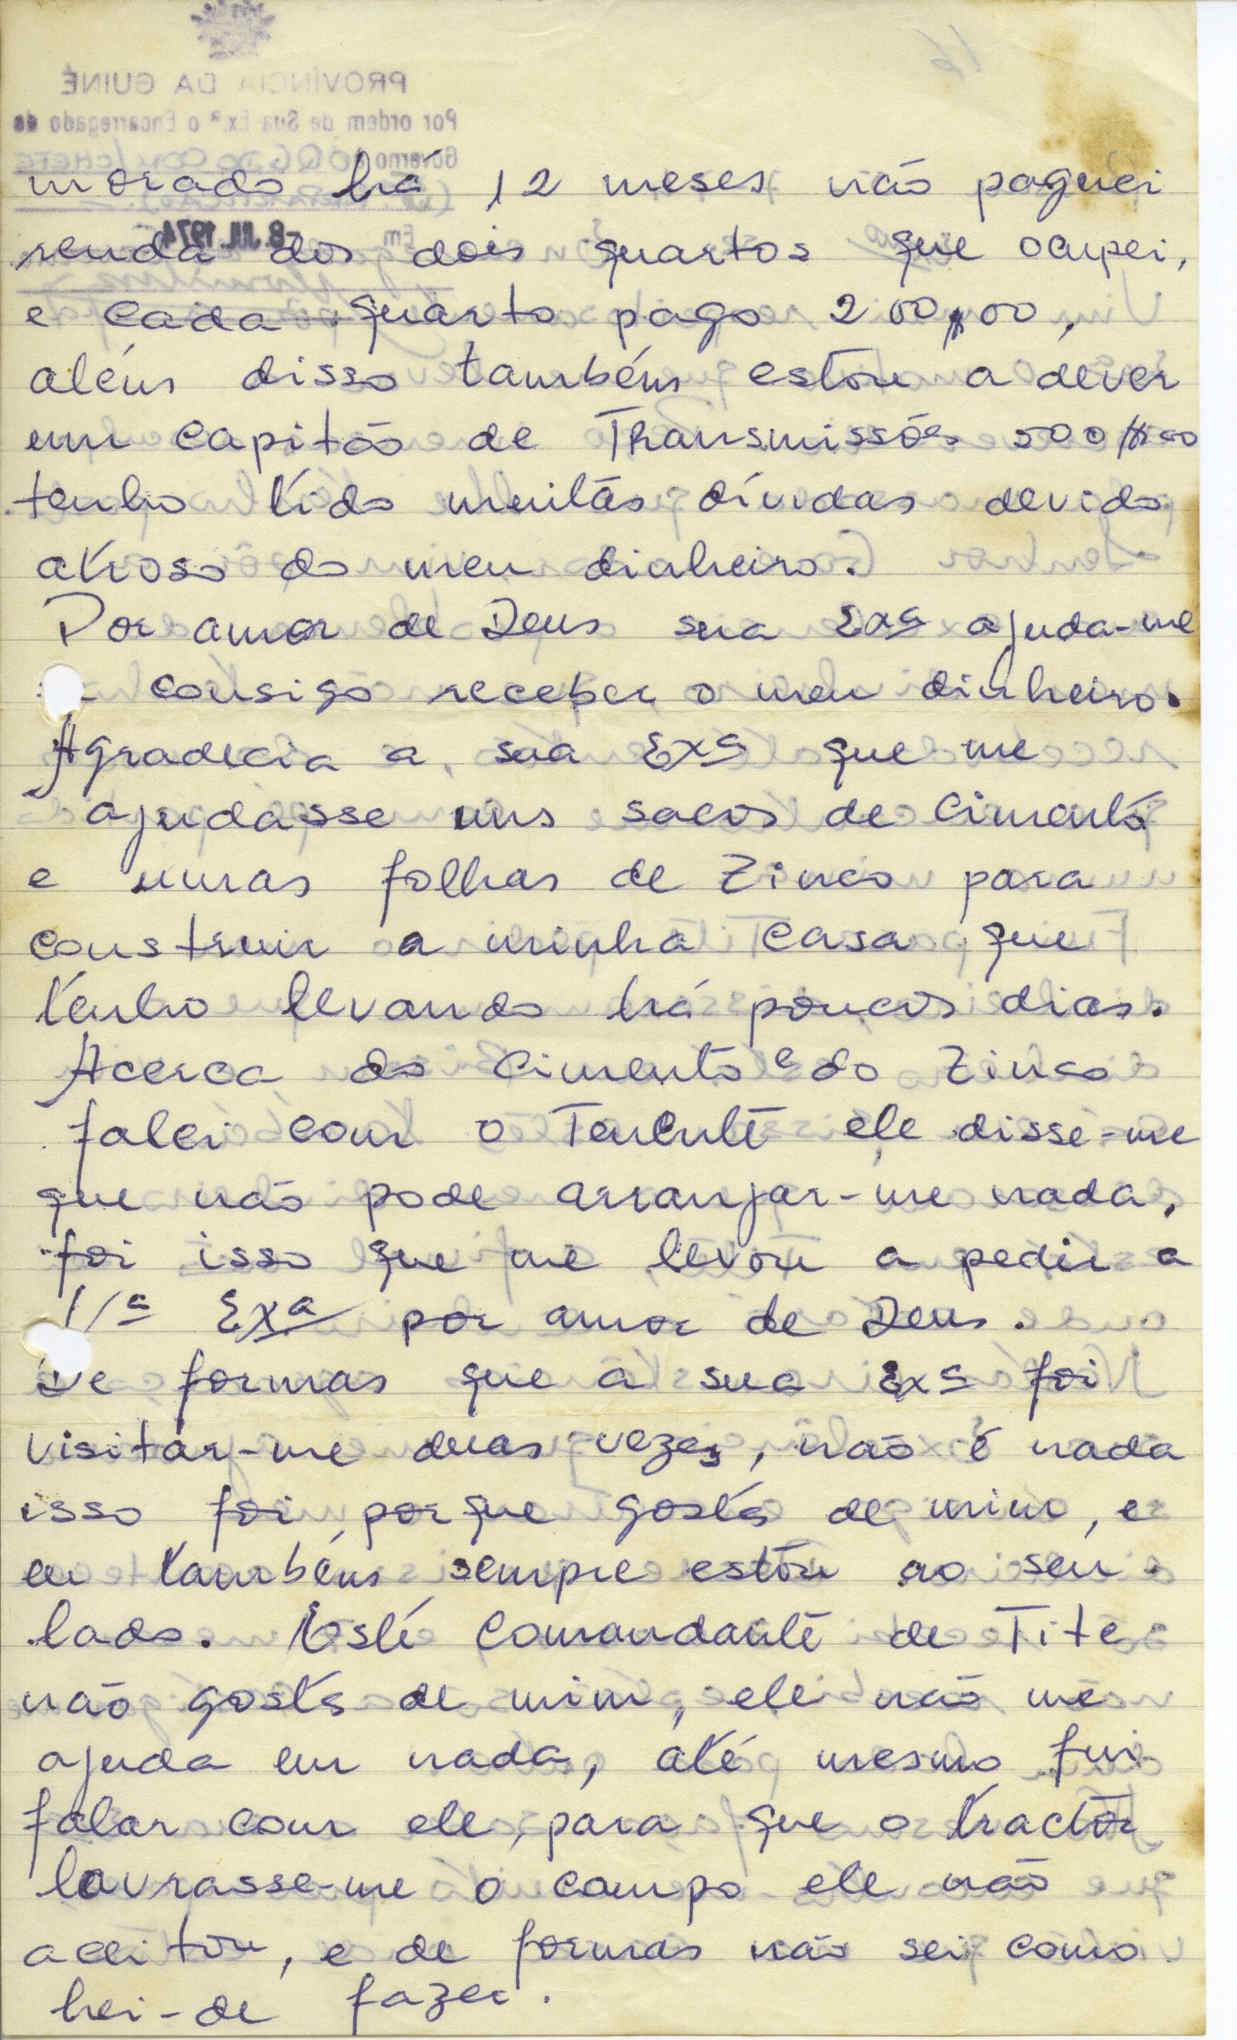 morado há 12 meses não paguei
renda dos dois quartos que ocupei,
e cada quarto pago 200$00,
além disso também estou a dever
um capitão de Transmissões 500$00
tenho tido muitas dívidas devido
atroso do meu dinheiro.
Por amor de Deus sua Exª ajuda-me
consigo receber o meu dinheiro.
Agradecia a sua Exª que me
ajudasse uns sacos de cimento
e umas folhas de Zinco para
construir a minha casa que
tenho levando há poucos dias.
Acerca do cimento e do Zinco
falei com o Tenente ele disse-me
que não pode arranjar-me nada,
foi isso que me levou a pedir a
Vª Exª por amor de Deus.
De formas que a sua Exª foi
visitar-me duas vezes, não é nada
isso foi porque gosta de mim, e
eu também sempre estou ao seu
lado. Este Comandante de Tite
não gosta de mim, ele não me
ajuda em nada, até mesmo fui
falar com ele, para que o tractor
lavrasse-me o campo ele não
aceitou, e de formas não sei como
hei-de fazer.
PROVÍNCIA DA GUINÉ
Por ordem de Sua Ex.ª o Encarregado do
Govêrno
Em -8. JUL. 1974
16